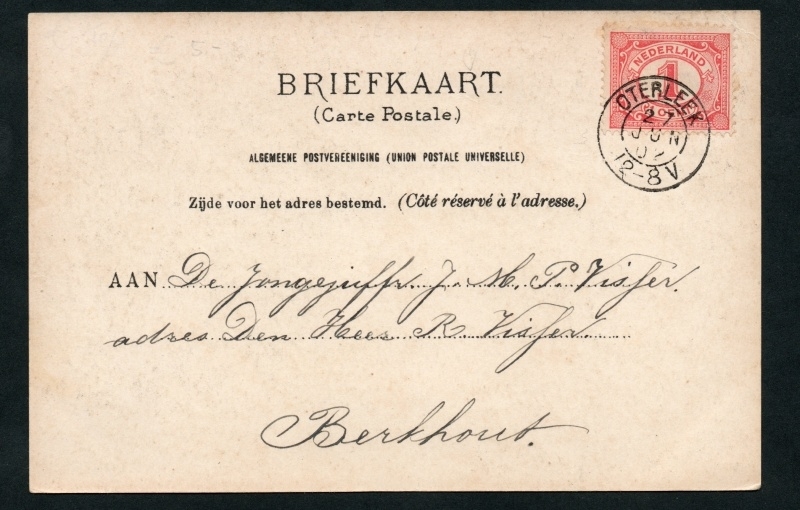 BRIEFKAART.
(Carte Postale.)
ALGEMEENE POSTVEREENIGING (UNION POSTALE UNIVERSELLE)
Zijde voor het adres bestemd. (Côté réservé à l'adresse.)
NEDERLAND
1
OTERLEEK
27
JUN
02
12-8V
AAN De Jongejuffr. J. M. P. Visser.
adres Den Heer R. Visser.
Berkhout.